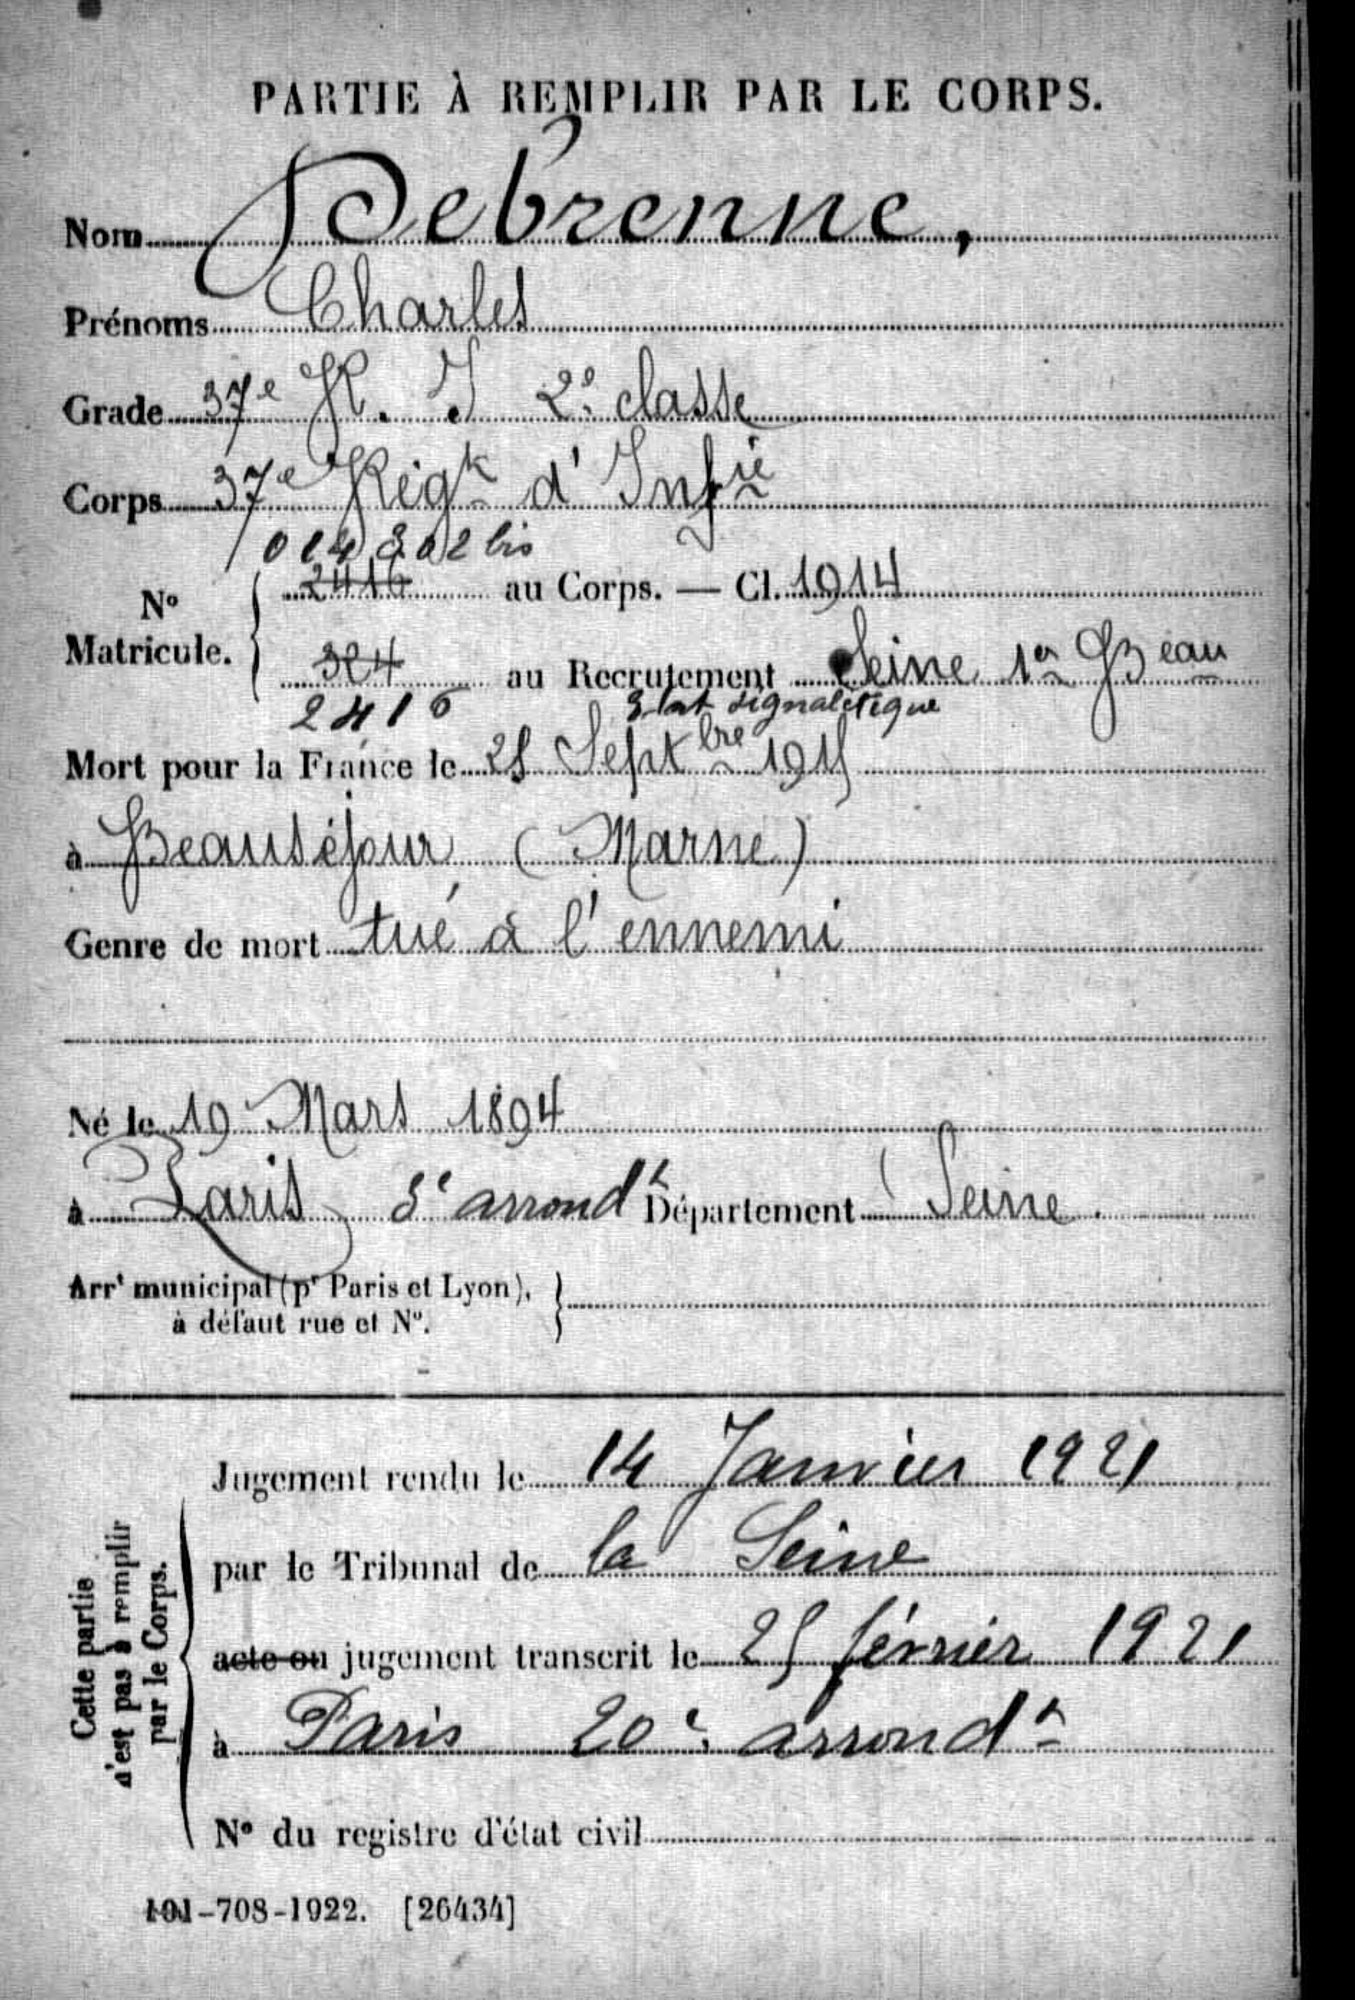 PARTIE À REMPLIR PAR LE CORPS.
Nom Debrenne,
Prénoms Charles
Grade 37e R. I 2e classe
Corps 37e Régt d'Infie
014302 bis
2416 au Corps. — Cl. 1914
N° Matricule.
324 au Recrutement Seine 1er Beau
2416 Etat signalétique
Mort pour la France le 25 Septbre 1915
à Beauséjour (Marne)
Genre de mort tué à l'ennemi
Né le 19 Mars 1894
à Paris 3e arrondt Département Seine
Arrt municipal (pr Paris et Lyon),
à défaut rue et N°.
Cette partie
n'est pas à remplir
par le Corps.
Jugement rendu le 14 Janvier 1921
par le Tribunal de la Seine
acte ou jugement transcrit le 25 février 1921
à Paris 20e arrondt
N° du registre d'état civil
101-708-1922. [26434]